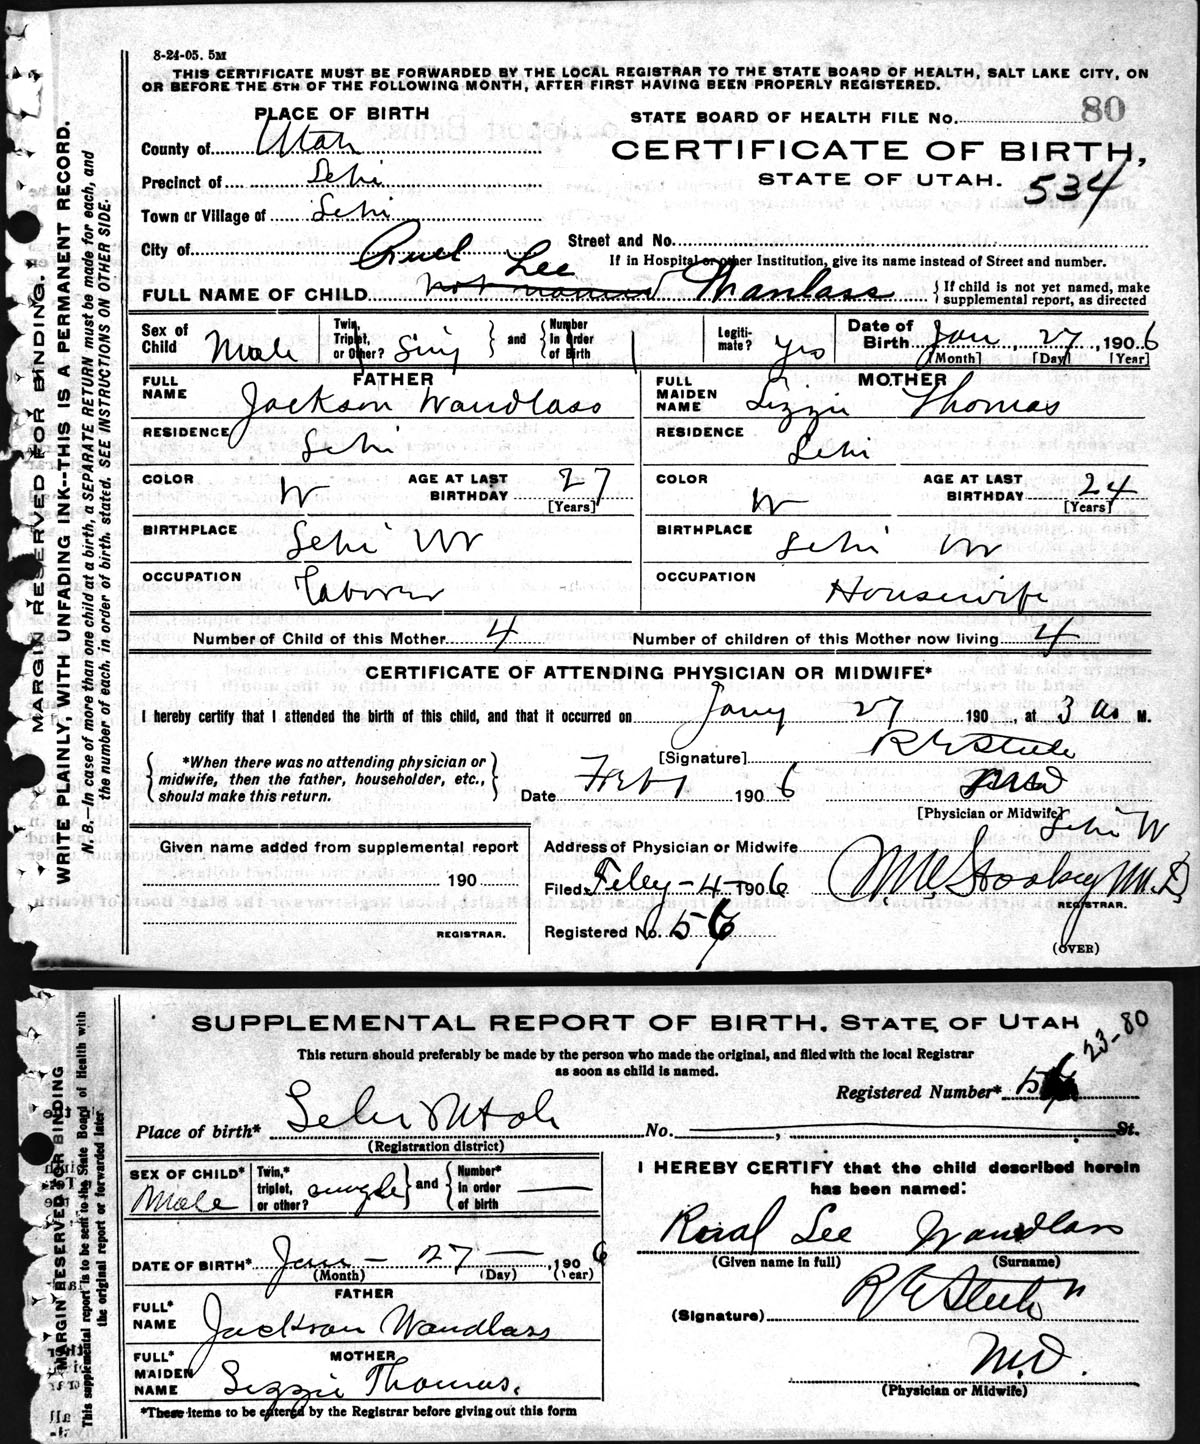 8-24-05. 5M
THIS CERTIFICATE MUST BE FORWARDED BY THE LOCAL REGISTRAR TO THE STATE BOARD OF HEALTH, SALT LAKE CITY, ON
OR BEFORE THE 5TH OF THE FOLLOWING MONTH, AFTER FIRST HAVING BEEN PROPERLY REGISTERED.
PLACE OF BIRTH
STATE BOARD OF HEALTH FILE No. 80
County of Utah
CERTIFICATE OF BIRTH,
STATE OF UTAH. 534
Precinct of Lehi
Town or Village of Lehi
City of
Street and No.
If in Hospital or other Institution, give its name instead of Street and number.
Lee
FULL NAME OF CHILD not named Wanlass
{ If child is not yet named, make supplemental report, as directed
Sex of Child Male
Twin, Triplet, or Other? Sing } and { Number in Order of Birth 1
Legiti- mate? yes
Date of Birth Jan, 27, 1906
[Month] [Day] [Year]
FATHER
FULL NAME Jackson Wandlass
RESIDENCE Lehi
COLOR W AGE AT LAST BIRTHDAY 27
[Years]
BIRTHPLACE Lehi
OCCUPATION Laborer
MOTHER
FULL MAIDEN NAME Lizzie Thomas
RESIDENCE Lehi
COLOR W AGE AT LAST BIRTHDAY 24
[Years]
BIRTHPLACE Lehi
OCCUPATION Housewife
Number of Child of this Mother 4 Number of children of this Mother now living 4
CERTIFICATE OF ATTENDING PHYSICIAN OR MIDWIFE*
I hereby certify that I attended the birth of this child, and that it occurred on Jany 27 190 , at 3 a M.
{ *When there was no attending physician or
midwife, then the father, householder, etc.,
should make this return. }
[Signature] R E Steele
Date Feb 1 1906 MD
[Physician or Midwife]
Given name added from supplemental report
190
REGISTRAR.
Address of Physician or Midwife Lehi
Filed Feby-4-1906 M.D.
REGISTRAR.
Registered No. 56
(OVER)
MARGIN RESERVED FOR BINDING.
WRITE PLAINLY, WITH UNFADING INK--THIS IS A PERMANENT RECORD.
N. B.—In case of more than one child at a birth, a SEPARATE RETURN must be made for each, and
the number of each, in order of birth, stated. SEE INSTRUCTIONS ON OTHER SIDE.
SUPPLEMENTAL REPORT OF BIRTH. STATE OF UTAH
23-80
This return should preferably be made by the person who made the original, and filed with the local Registrar
as soon as child is named.
Registered Number* 56
Place of birth* Lehi Utah No. , St.
(Registration district)
SEX OF CHILD* Male
Twin,* triplet, or other? single } and { Number* in order of birth
DATE OF BIRTH* Jan - 27 1906
(Month) (Day) (Year)
FATHER
FULL* NAME Jackson Wandlass
MOTHER
FULL* MAIDEN NAME Lizzie Thomas.
*These items to be entered by the Registrar before giving out this form
I HEREBY CERTIFY that the child described herein
has been named:
Rual Lee Wandlass
(Given name in full) (Surname)
(Signature) R E Steele
M.D.
(Physician or Midwife)
MARGIN RESERVED FOR BINDING
This supplemental report is to be sent to the State Board of Health with
the original report or forwarded later